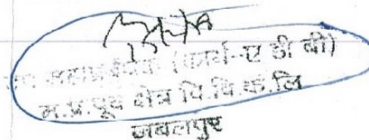 महाप्रबंधक (कार्य-ए डी बी)
म.प्र.पूर्व क्षेत्र वि.वि.कं.लि
जबलपुर